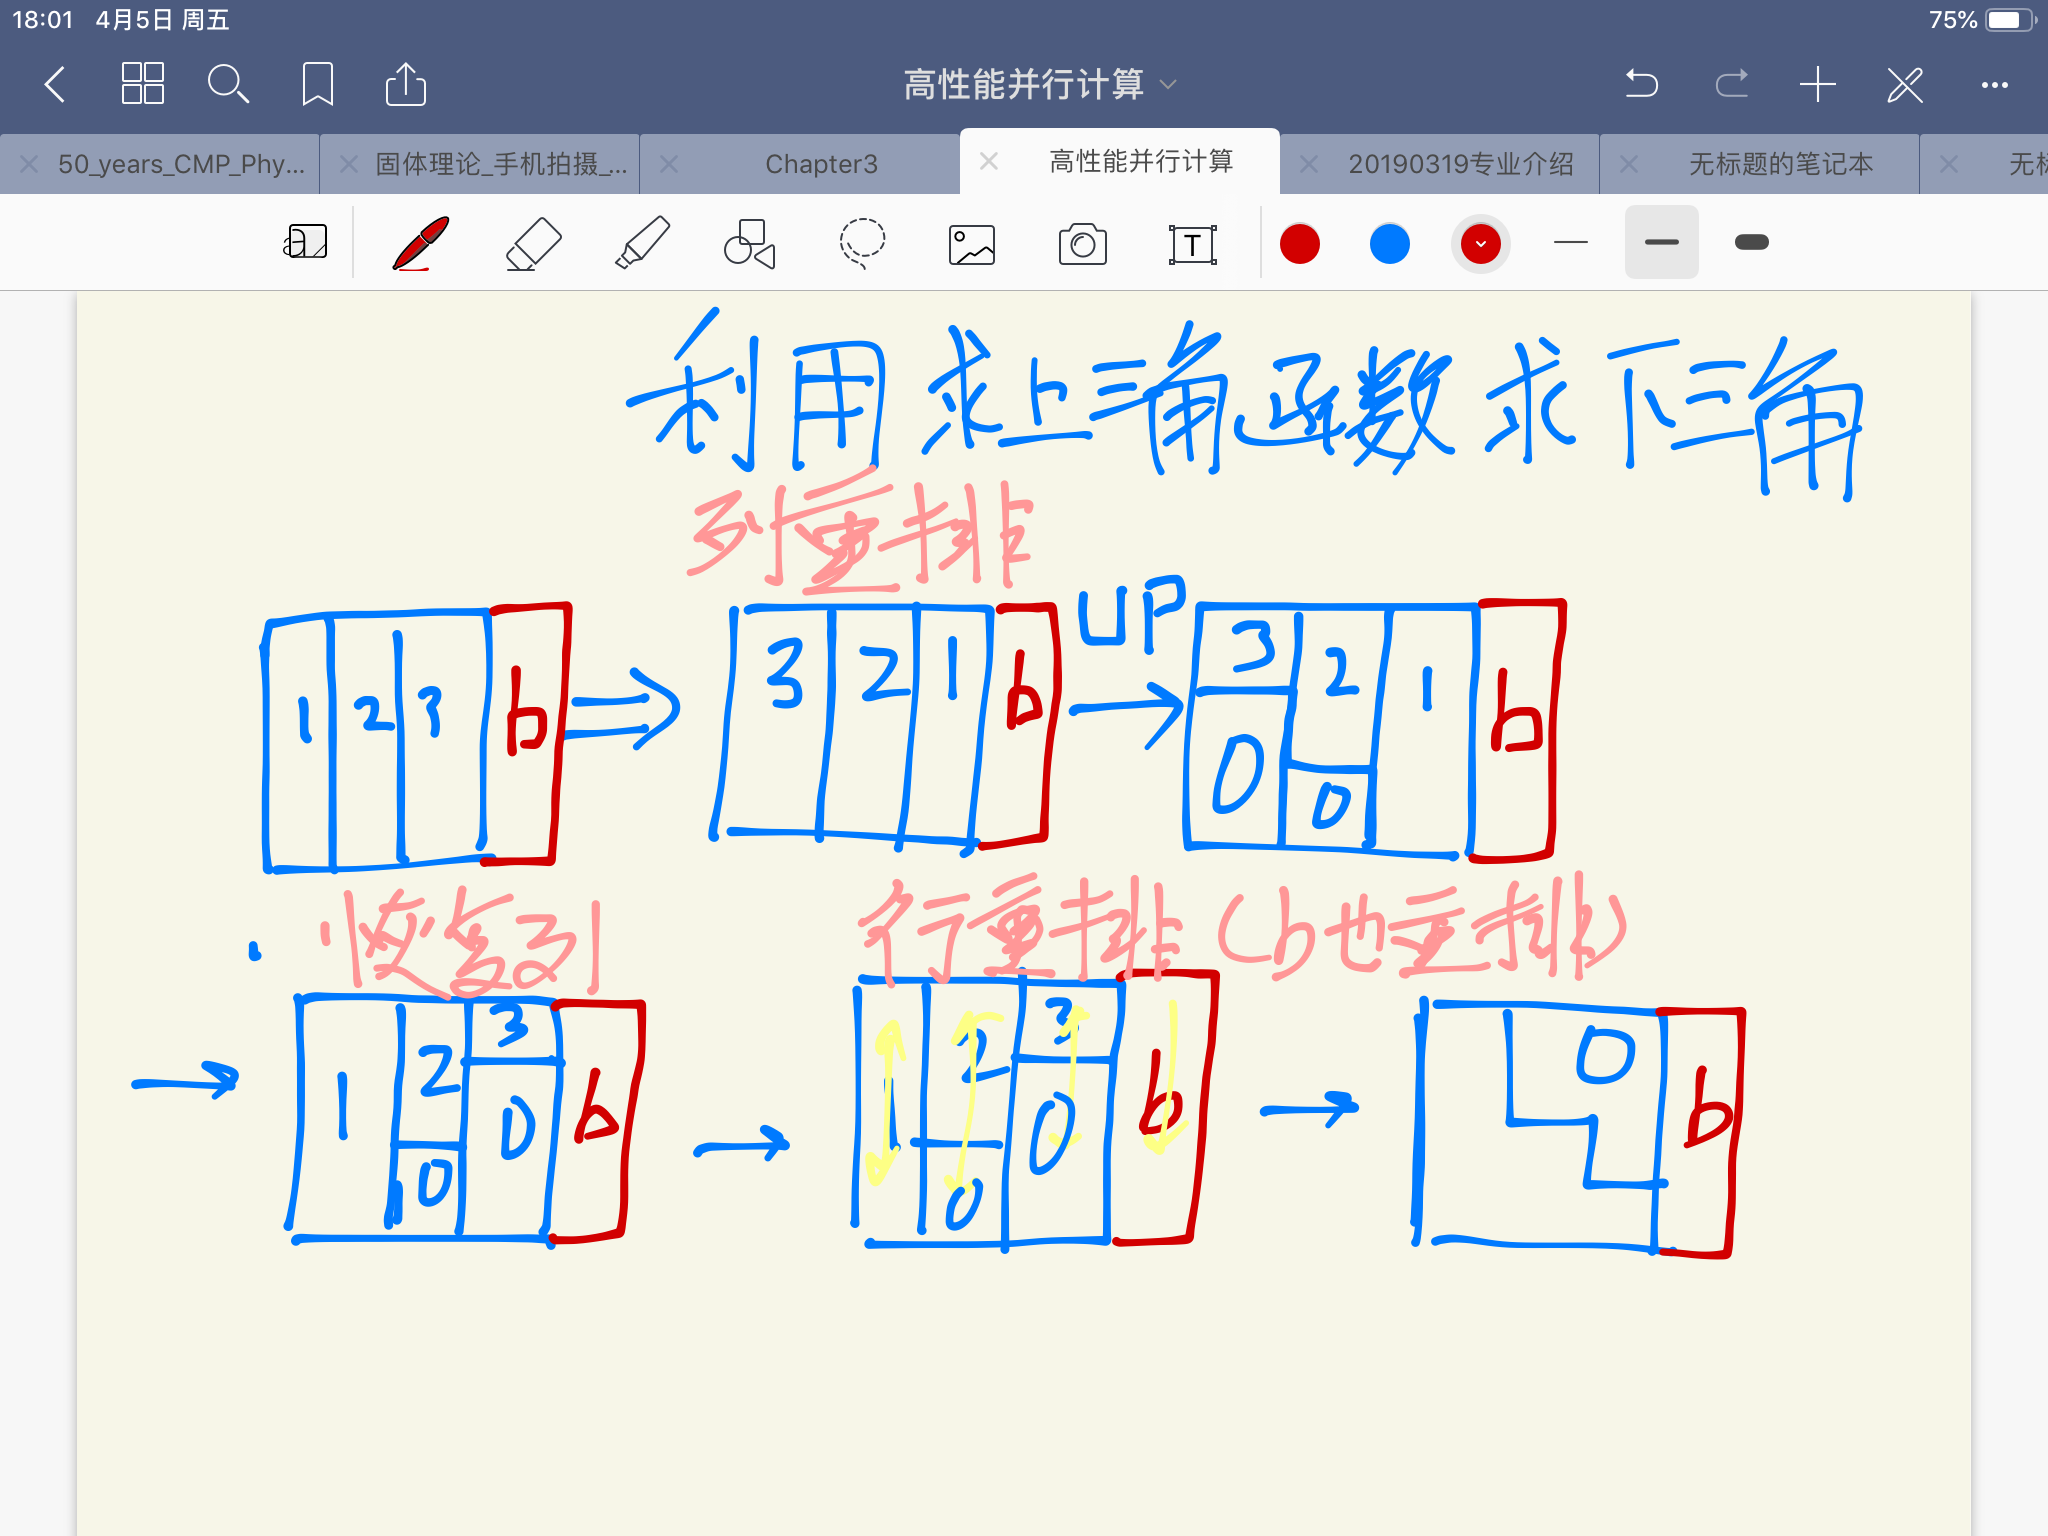 18:01 4月5日 周五 75%
高性能并行计算
50_years_CMP_Phy... 固体理论_手机拍摄_... Chapter3 高性能并行计算 20190319专业介绍 无标题的笔记本 无标
a T
利用求上三角函数求下三角
列重排
1 2 3 b 3 2 1 b UP 3 2 1 b
0 0
恢复列 行重排(b也重排)
1 2 3 b 2 3 b 0 b
0 0 0 0